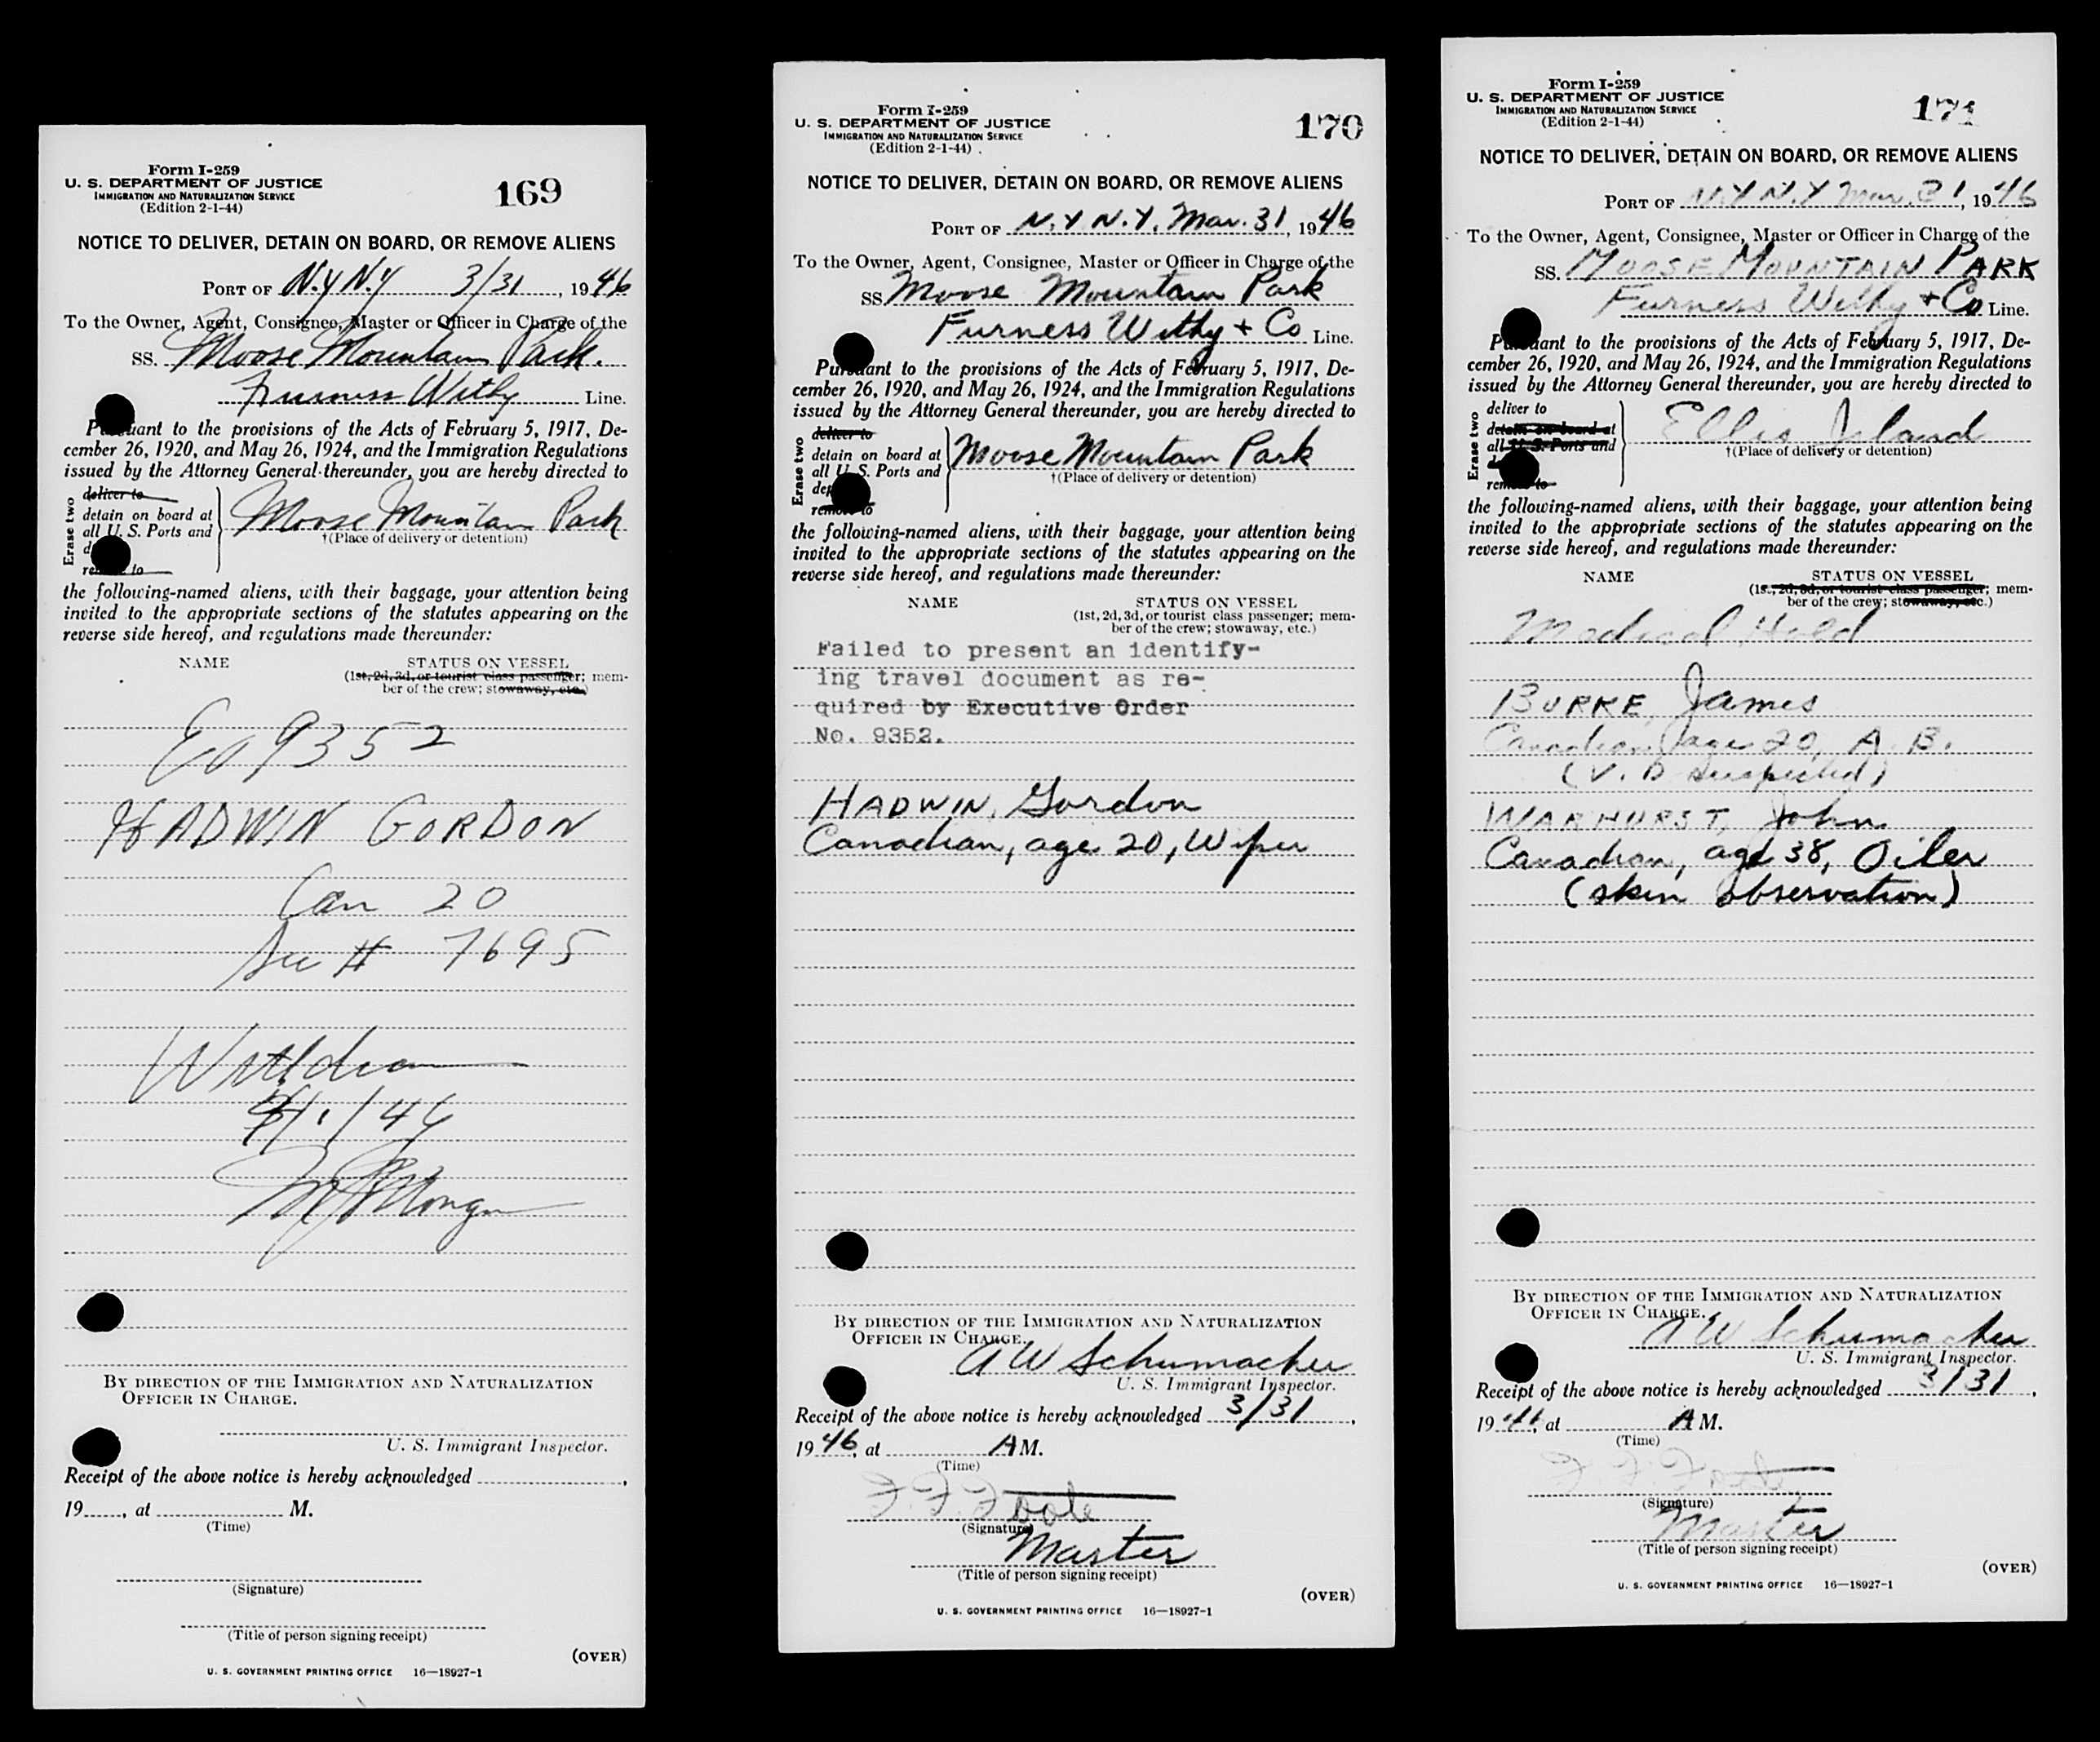 Form I-259
U. S. DEPARTMENT OF JUSTICE
IMMIGRATION AND NATURALIZATION SERVICE
(Edition 2-1-44)
169
NOTICE TO DELIVER, DETAIN ON BOARD, OR REMOVE ALIENS
PORT OF N.Y N.Y 3/31, 1946
To the Owner, Agent, Consignee, Master or Officer in Charge of the
SS. Moose Mountain Park.
Furness Withy Line.
Pursuant to the provisions of the Acts of February 5, 1917, De-
cember 26, 1920, and May 26, 1924, and the Immigration Regulations
issued by the Attorney General thereunder, you are hereby directed to
Erase two
deliver to
detain on board at
all U. S. Ports and
remove to
Moose Mountain Park
†(Place of delivery or detention)
the following-named aliens, with their baggage, your attention being
invited to the appropriate sections of the statutes appearing on the
reverse side hereof, and regulations made thereunder:
NAME STATUS ON VESSEL
(1st, 2d, 3d, or tourist class passenger; mem-
ber of the crew; stowaway, etc.)
Eo 9352
HADWIN GORDON
Can 20
See # 7695
4/1/46
BY DIRECTION OF THE IMMIGRATION AND NATURALIZATION
OFFICER IN CHARGE.
U. S. Immigrant Inspector.
Receipt of the above notice is hereby acknowledged ,
19 , at M.
(Time)
(Signature)
(Title of person signing receipt)
(OVER)
U. S. GOVERNMENT PRINTING OFFICE 16—18927-1
Form I-259
U. S. DEPARTMENT OF JUSTICE
IMMIGRATION AND NATURALIZATION SERVICE
(Edition 2-1-44)
170
NOTICE TO DELIVER, DETAIN ON BOARD, OR REMOVE ALIENS
PORT OF N.Y N.Y. Mar. 31, 1946
To the Owner, Agent, Consignee, Master or Officer in Charge of the
SS Moose Mountain Park
Furness Withy + Co Line.
Pursuant to the provisions of the Acts of February 5, 1917, De-
cember 26, 1920, and May 26, 1924, and the Immigration Regulations
issued by the Attorney General thereunder, you are hereby directed to
Erase two
deliver to
detain on board at
all U. S. Ports and
remove to
Moose Mountain Park
†(Place of delivery or detention)
the following-named aliens, with their baggage, your attention being
invited to the appropriate sections of the statutes appearing on the
reverse side hereof, and regulations made thereunder:
NAME STATUS ON VESSEL
(1st, 2d, 3d, or tourist class passenger; mem-
ber of the crew; stowaway, etc.)
Failed to present an identify-
ing travel document as re-
quired by Executive Order
No. 9352.
HADWIN, Gordon
Canadian, age 20, Wiper
BY DIRECTION OF THE IMMIGRATION AND NATURALIZATION
OFFICER IN CHARGE.
A W Schumacher
U. S. Immigrant Inspector.
Receipt of the above notice is hereby acknowledged 3/31,
1946, at A M.
(Time)
F. F. Foote
(Signature)
Master
(Title of person signing receipt)
(OVER)
U. S. GOVERNMENT PRINTING OFFICE 16—18927-1
Form I-259
U. S. DEPARTMENT OF JUSTICE
IMMIGRATION AND NATURALIZATION SERVICE
(Edition 2-1-44)
171
NOTICE TO DELIVER, DETAIN ON BOARD, OR REMOVE ALIENS
PORT OF N.Y N.Y Mar. 31, 1946
To the Owner, Agent, Consignee, Master or Officer in Charge of the
SS. MOOSE MOUNTAIN PARK
Furness Withy + Co Line.
Pursuant to the provisions of the Acts of February 5, 1917, De-
cember 26, 1920, and May 26, 1924, and the Immigration Regulations
issued by the Attorney General thereunder, you are hereby directed to
Erase two
deliver to
detain on board at
all U. S. Ports and
remove to
Ellis Island
†(Place of delivery or detention)
the following-named aliens, with their baggage, your attention being
invited to the appropriate sections of the statutes appearing on the
reverse side hereof, and regulations made thereunder:
NAME STATUS ON VESSEL
(1st, 2d, 3d, or tourist class passenger; mem-
ber of the crew; stowaway, etc.)
Medical Hold
BURKE, James
Canadian, age 20, A. B.
(V. D suspected)
WARHURST, John
Canadian, age 38, Oiler
(skin observation)
BY DIRECTION OF THE IMMIGRATION AND NATURALIZATION
OFFICER IN CHARGE.
A W Schumacher
U. S. Immigrant Inspector.
Receipt of the above notice is hereby acknowledged 3/31,
1946, at A M.
(Time)
F. F. Foote
(Signature)
Master
(Title of person signing receipt)
(OVER)
U. S. GOVERNMENT PRINTING OFFICE 16—18927-1